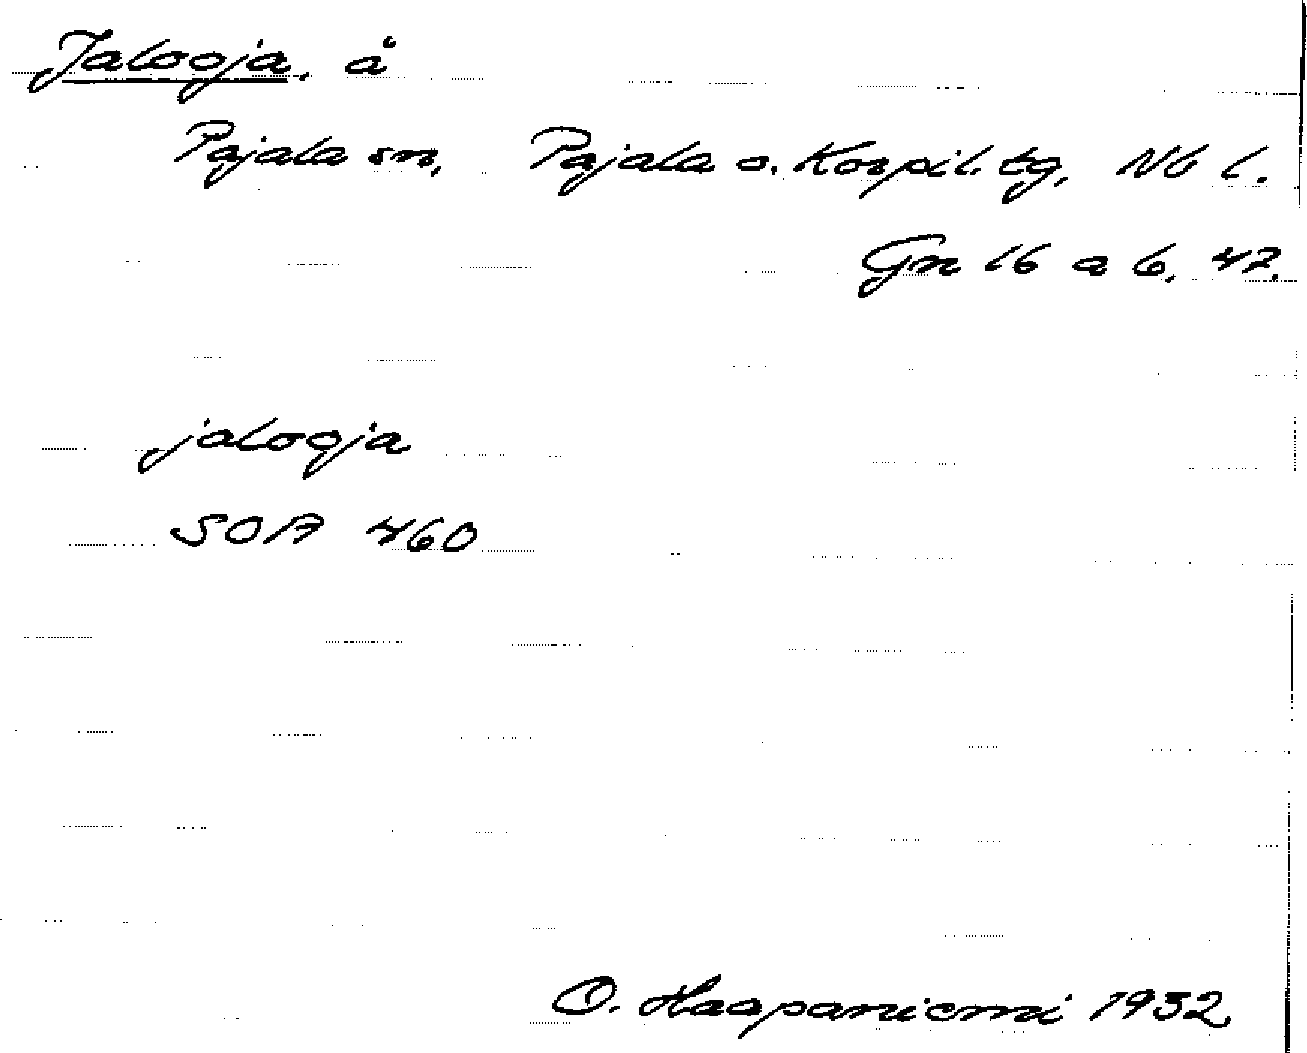 Jalooja, å
Pajala sn, Pajala o. Korpil. tg, Nb l.
Gn 16 a b, 42.
jalooja
SOA 460
O. Haapaniemi 1932